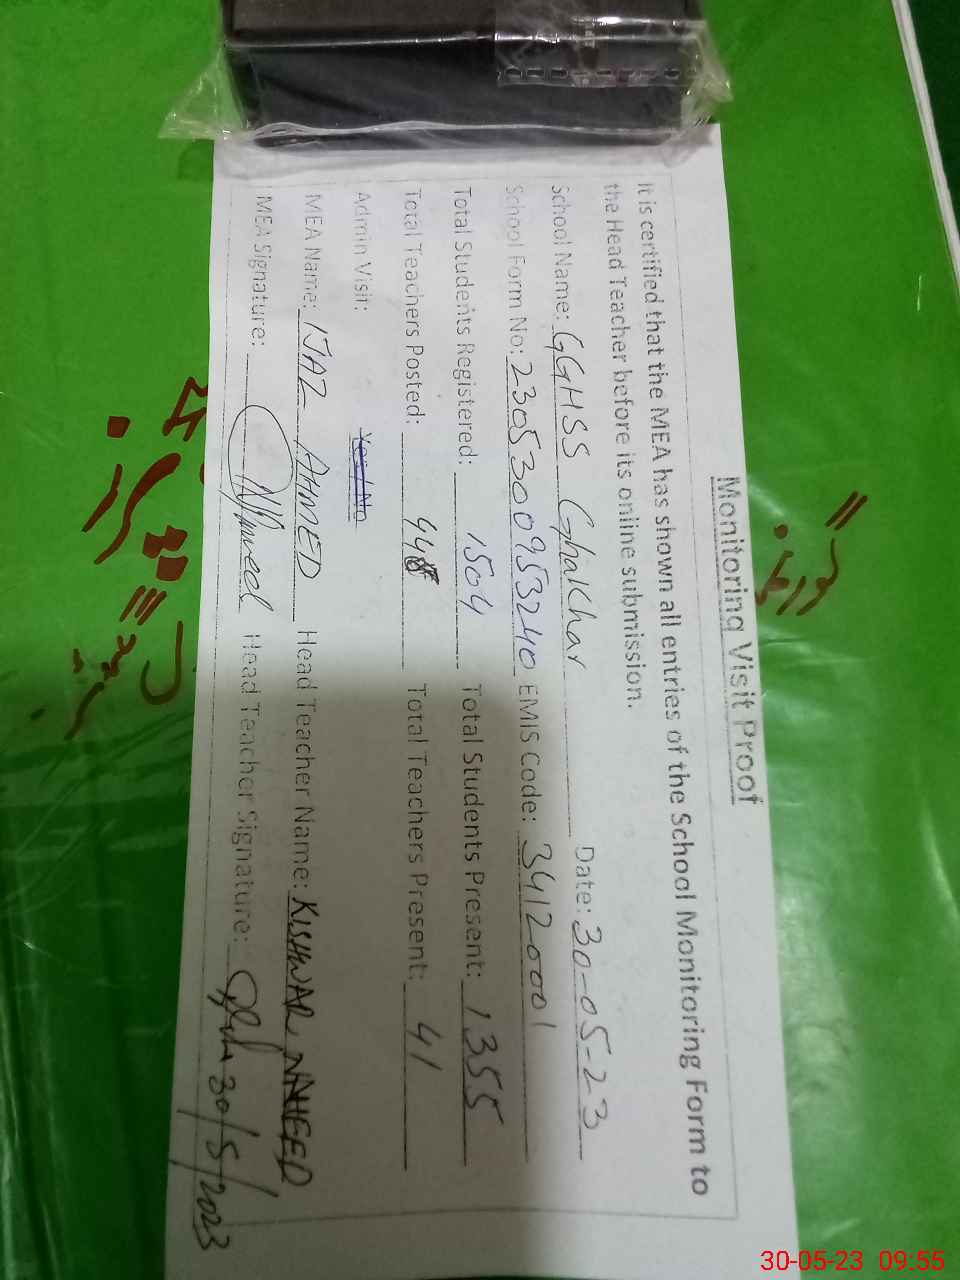 Monitoring Visit Proof
It is certified that the MEA has shown all entries of the School Monitoring Form to
the Head Teacher before its online submission.
School Name: GGHSS Ghakhar Date: 30-05-23
School Form No: 2305300953240 EMIS Code: 34120001
Total Students Registered: 1504 Total Students Present: 1355
Total Teachers Posted: 44 Total Teachers Present: 41
Admin Visit: Yes / No
MEA Name: IJAZ AHMED Head Teacher Name: KISHWAR NAHEED
MEA Signature: Head Teacher Signature: 30/5/2023
30-05-23 09:55